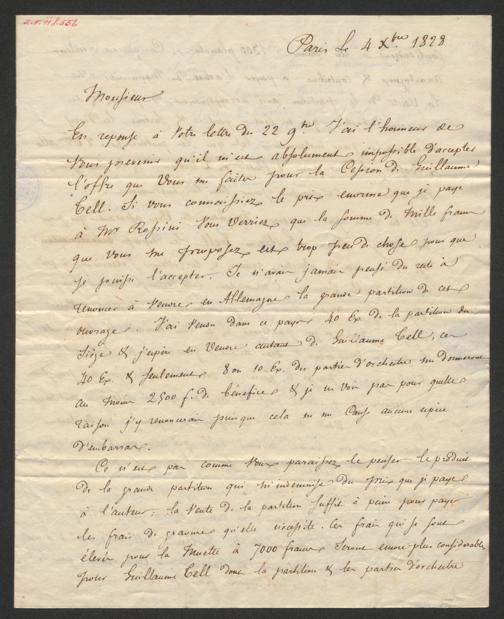 Paris Le 4 Xbre 1828
Monsieur
En reponse à Votre lettre du 22 9bre J'ai l'honneur de
Vous prevenir qu'il m'est absolument impossible d'accepter
l'offre que Vous me faites pour la Cession de Guillaume
Tell. Si vous connoissiez le prix enorme que je paye
à Mr Rossini Vous Verriez que la somme de Mille francs
que Vous me proposez est trop peu de chose pour que
je puisse l'accepter. Je n'avais jamais pensé du reste à
renoncer à Vendre en Allemagne la grande partition de cet
ouvrage. J'ai Vendu dans ce pays 40 Ex. de la partition du
Siège & j'espère en Vendre autant de Guillaume Tell, ces
40 Ex. & seulement 8 ou 10 Ex. des parties d'orchestre me donneront
au moins 2500 f. de bénéfice & je ne vois pas pour quelle
raison j'y renoncerais puisque cela ne me Cause aucune espèce
d'embarras.
Ce n'est pas comme Vous paraissez le penser le produit
de la grande partition qui m'indemnise du prix que je paye
à l'auteur, la Vente de la partition suffit à peine pour payer
les frais de gravure qu'elle necessite. Ces frais qui se sont
élevés pour la Muette à 7000 francs seront encore plus considerables
pour Guillaume Tell dont la partition & les parties d'orchestre